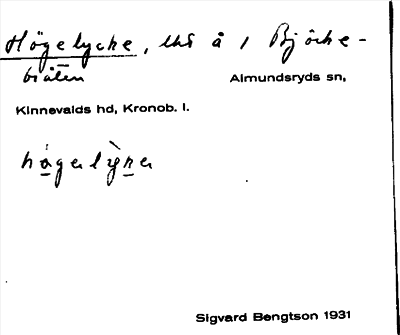 Högelycke, lhs å 1 Björke-
bråten Almundsryds sn,
Kinnevalds hd, Kronob. l.
Sigvard Bengtson 1931